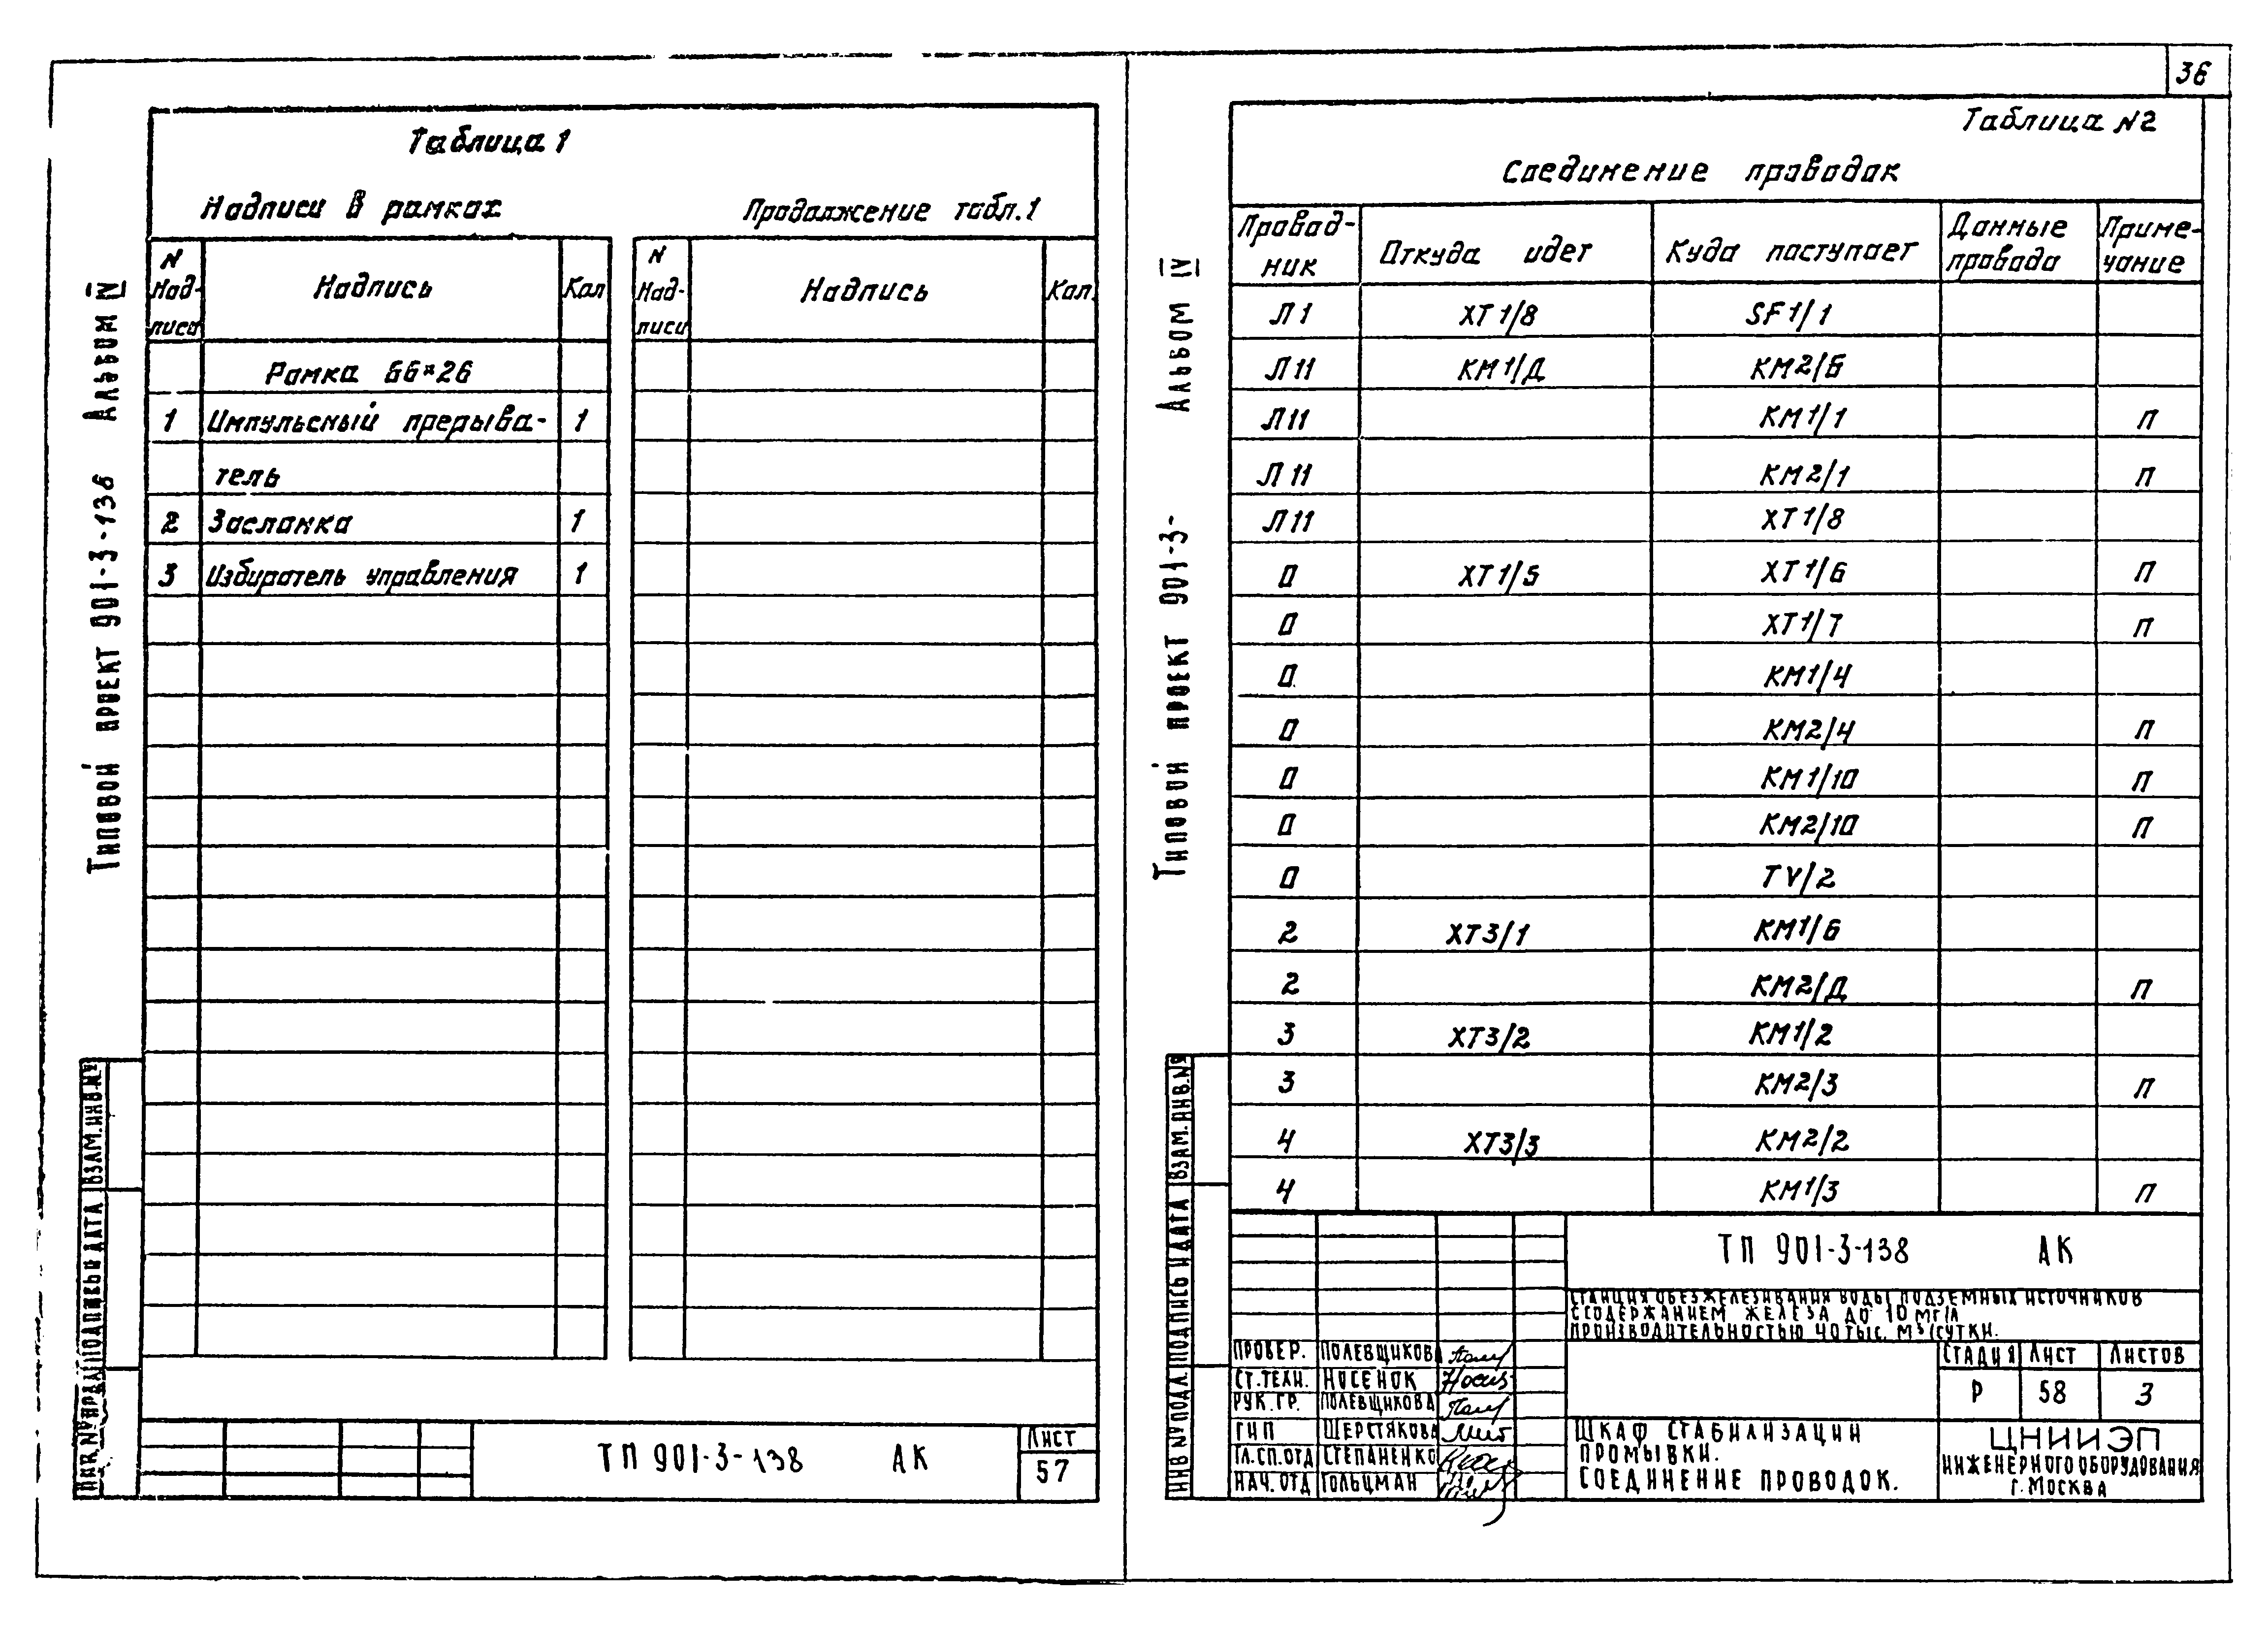 36
Альбом IV
Типовой проект 901-3-138
Таблица 1
Надписи в рамках
Продолжение табл.1
N Над- писи Надпись Кол
N Над- писи Надпись Кол.
Рамка 66×26
1 Импульсный прерыва- 1
тель
2 Заслонка 1
3 Избиратель управления 1
ВЗАМ.ИНВ.№
ПОДПИСЬ И ДАТА
ТП 901-3-138 АК
Лист
57
Альбом IV
Типовой проект 901-3-
Таблица N2
Соединение проводок
Провод- ник Откуда идет Куда поступает Данные провода Приме- чание
Л1 ХТ1/8 SF1/1
Л11 КМ1/Д КМ2/Б
Л11 КМ1/1 П
Л11 КМ2/1 П
Л11 ХТ1/8
0 ХТ1/5 ХТ1/6 П
0 ХТ1/7 П
0 КМ1/4
0 КМ2/4 П
0 КМ1/10 П
0 КМ2/10 П
0 TV/2
2 ХТ3/1 КМ1/Б
2 КМ2/Д П
3 ХТ3/2 КМ1/2
3 КМ2/3 П
4 ХТ3/3 КМ2/2
4 КМ1/3 П
ВЗАМ.ИНВ.№
ПОДПИСЬ И ДАТА
ИНВ № ПОДЛ.
ТП 901-3-138 АК
СТАНЦИЯ ОБЕЗЖЕЛЕЗИВАНИЯ ВОДЫ ПОДЗЕМНЫХ ИСТОЧНИКОВ
С СОДЕРЖАНИЕМ ЖЕЛЕЗА ДО 10 МГ/Л
ПРОИЗВОДИТЕЛЬНОСТЬЮ 40 ТЫС. М3/СУТКИ.
ПРОВЕР. ПОЛЕВЩИКОВА
СТ.ТЕХН. НОСЕНОК
РУК.ГР. ПОЛЕВЩИКОВА
ГИП ШЕРСТЯКОВА
ГЛ.СП.ОТД СТЕПАНЕНКО
НАЧ.ОТД ГОЛЬЦМАН
СТАДИЯ ЛИСТ ЛИСТОВ
Р 58 3
ШКАФ СТАБИЛИЗАЦИИ
ПРОМЫВКИ.
СОЕДИНЕНИЕ ПРОВОДОК.
ЦНИИЭП
ИНЖЕНЕРНОГО ОБОРУДОВАНИЯ
Г. МОСКВА